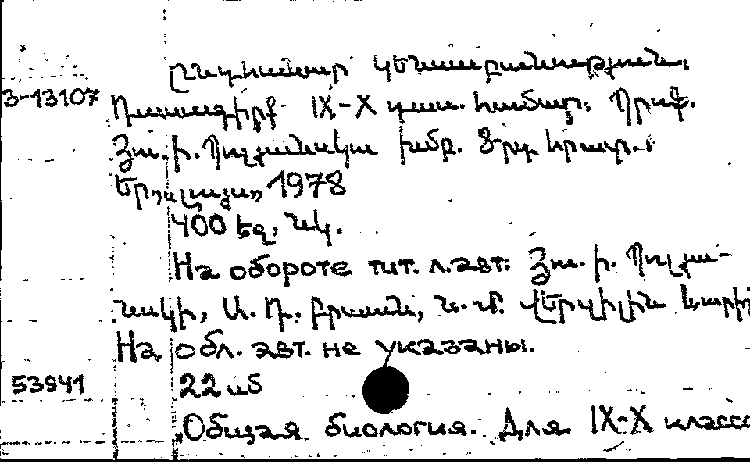 Ընդհանուր կենսաբանություն.
3-13107 Դասագիրք IX-X դաս. համար. Պրոֆ.
Յու. ի. Պոլյանսկու խմբ. 8-րդ հրատ.
Եր., Լույս, 1978
400 եզ. նկ.
На обороте тит. л. авт: Յու. ի. Պոլյա-
նսկի, Ա. Դ. Բրաուն, Ն. Մ. Վերզիլին
На обл. авт. не указаны.
53941 22
Общая биология. Для IX-X класс